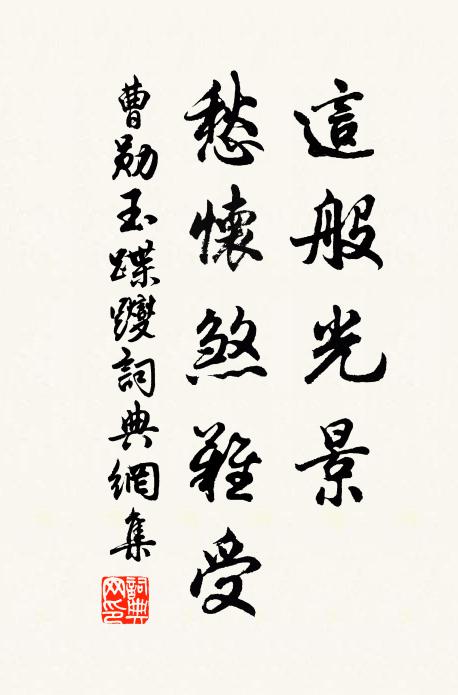 這般光景
愁懷煞難受
曹勛玉蹀躞詞典網集
詞典網印